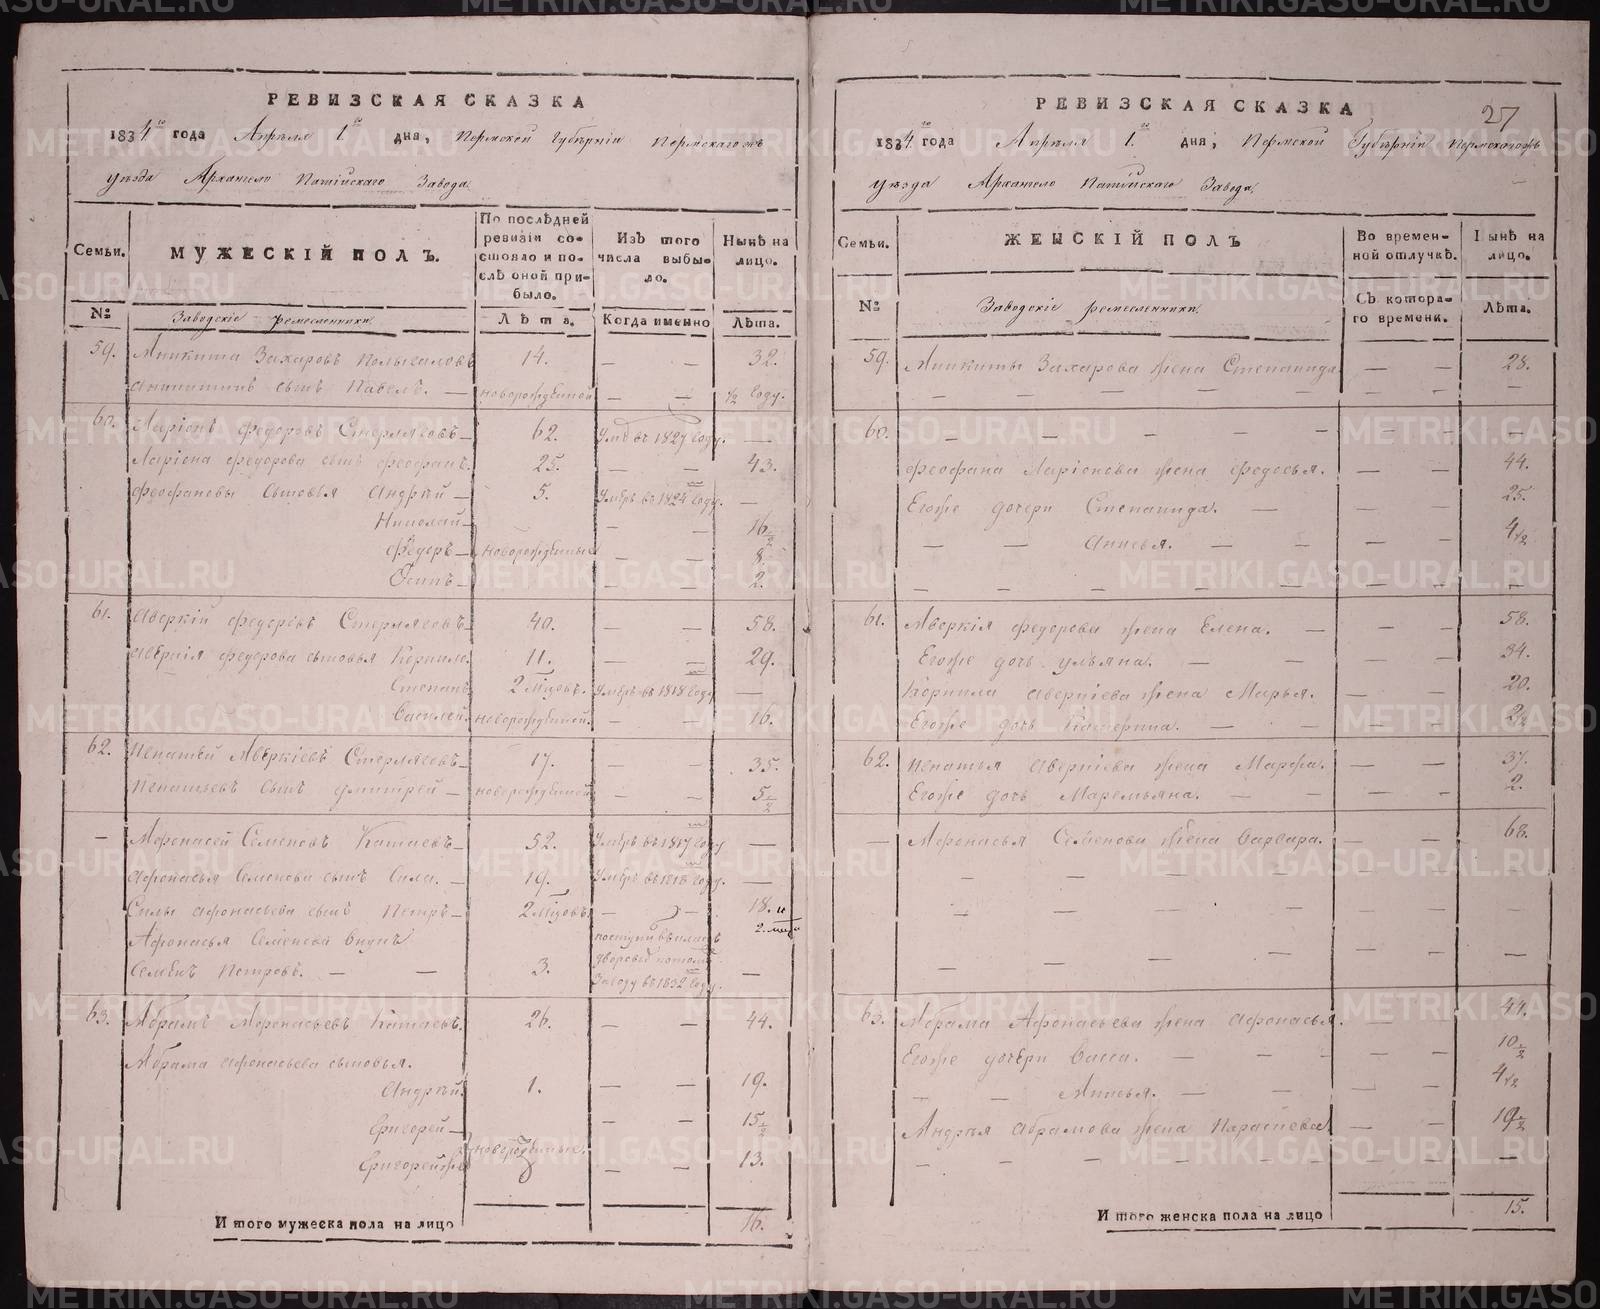 РЕВИЗСКАЯ СКАЗКА
1834го года Апреля 1го дня, Пермской Губернiи Пермскагожъ
уезда Архангело Пашiйскаго Завода.
Семьи.
МУЖЕСКIЙ ПОЛЪ.
По послѣдней ревизiи состояло и послѣ оной прибыло.
Изъ того числа выбыло.
Нынѣ на лицо.
№
Заводскiе ремесленники.
Лѣта.
Когда именно
Лѣта.
59. Никита Захаровъ 14. — — 32.
сынъ Павелъ. — новорожденной — — 1/2 году.
60. Ларiонъ Федоровъ Стерляговъ — 62. Умре въ 1827 году. —
Ларiона Федорова сынъ Феофанъ. 25. — — 43.
Феофановы сыновья Андрей — 5. Умре въ 1824 году. —
Николай — — — 16 1/2
Федоръ — новорожденные — — 8.
Осипъ — — — 2.
61. Аверкiй Федоровъ Стерляговъ 40. — — 58.
Аверкiя Федорова сыновья Корнило. 11. — — 29.
Степанъ 2 мѣсовъ. Умре въ 1818 году —
Василей. новорожденной. — — 16.
62. Игнатей Аверкiевъ Стерляговъ — 17. — — 35.
Игнатьевъ сынъ Дмитрей — новорожденной — — 5 1/2
— Афонасей Семеновъ Катаевъ — 52. Умре въ 1817 году —
Афонасья Семенова сынъ Сила. — 19. Умре въ 1818 году. —
Силы Афонасьева сынъ Петръ — 2 мѣсовъ. — — 18. и 2. мѣся
Афонасья Семенова внукъ
Семенъ Петровъ. — — 3. въ 1832 году. —
63. Абрамъ Афонасьевъ Катаевъ. 26. — — 44.
Абрама Афонасьева сыновья.
Андрей 1. — — 19.
Григорей — — — 15 1/2
Григорейже новорожденные. — — 13.
Итого мужеска пола на лицо 16.
27
РЕВИЗСКАЯ СКАЗКА
1834го года Апреля 1го дня, Пермской Губернiи Пермскагожъ
уезда Архангело Пашiйскаго Завода.
Семьи.
ЖЕНСКIЙ ПОЛЪ
Во временной отлучкѣ.
Нынѣ на лицо.
№
Заводскiе ремесленники.
Съ котораго времени.
Лѣта.
59. Никиты Захарова жена Степанида — — 28.
— — — — — — — —
60. — — — — — — — —
Феофана Ларiонова жена Федосья. — — 44.
Егоже дочери Степанида. — — — 25.
— — Анисья. — — — — 4 1/2
— — — — — — — —
61. Аверкiя Федорова жена Елена. — — — 58.
Егоже дочь Ульяна. — — — — 34.
Корнила Аверкiева жена Марья. — — 20.
Егоже дочь Катерина. — — — — 2 1/2
62. Игнатья Аверкiева жена Марфа. — — 37.
Егоже дочь Маремьяна. — — — — 2.
— Афонасья Семенова жена Варвара. — — 68.
— — — — — — — —
— — — — — — — —
— — — — — — — —
63. Абрама Афонасьева жена Афонасья. — — 44.
Егоже дочери Васса. — — — — 10 1/2
— — Анисья. — — — — 4 1/2
Андрея Абрамова жена Параскева — — 19 1/2
— — — — — — — —
Итого женска пола на лицо 15.
METRIKI.GASO-URAL.RU